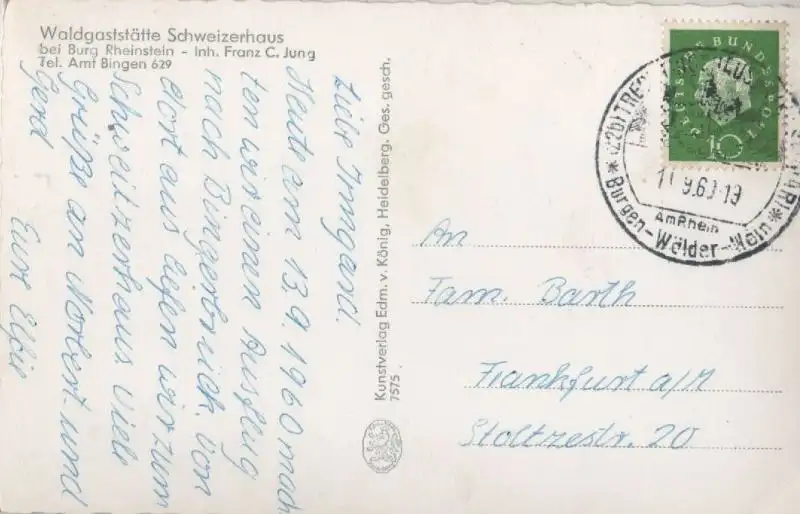 Waldgaststätte Schweizerhaus
bei Burg Rheinstein - Inh. Franz C. Jung
Tel. Amt Bingen 629
Liebe Irmgard.
Heute am 13.9.1960 mach
ten wir einen Ausflug
nach Bingerbrück von
dort aus liefen wir zum
Schweitzerhaus Viele
Grüße an Norbert und
Gerd
Eure Elfie
Kunstverlag Edm. v. König, Heidelberg. Ges. gesch.
7575
DEUTSCHE BUNDESPOST
10
(22b) TRECHTINGSHAUSEN
11.9.60-19
AmRhein
Burgen-Wälder-Wein
An
Fam. Barth
Frankfurt a/M
Stoltzestr. 20